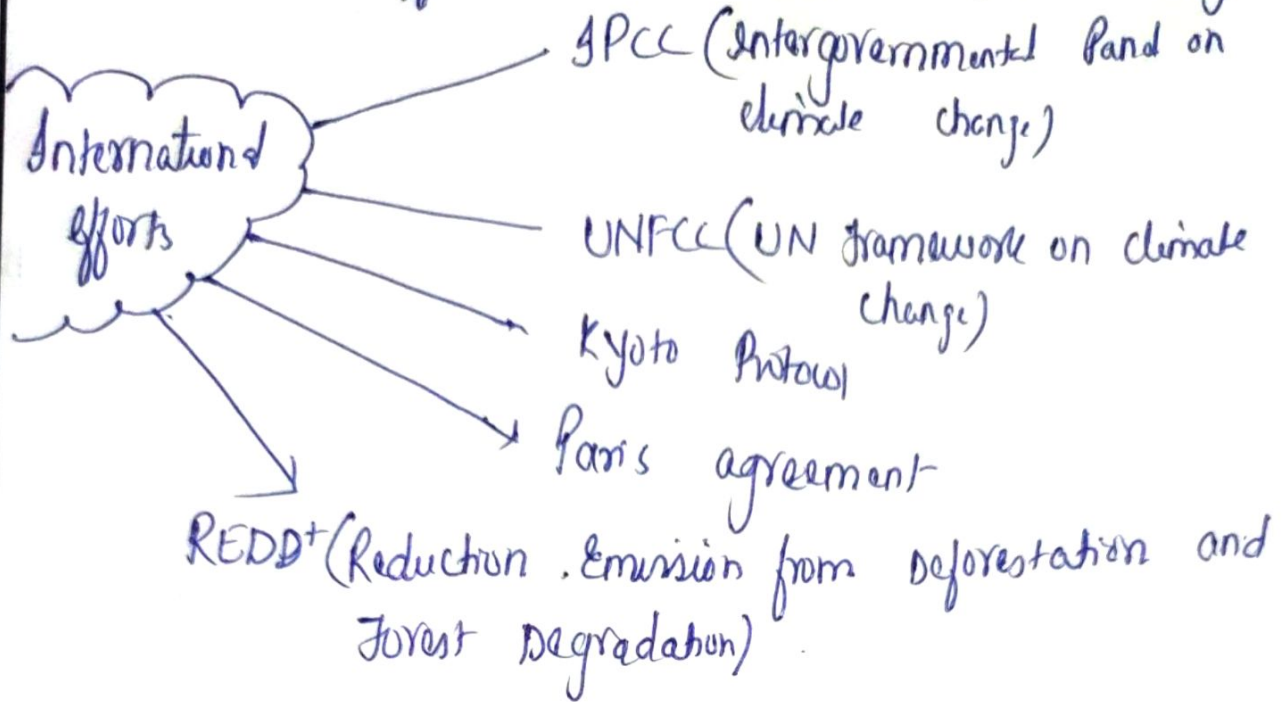 International
efforts
IPCC (Intergovernmental Panel on
climate change)
UNFCC (UN framework on climate
change)
Kyoto Protocol
Paris agreement
REDD+ (Reduction Emission from Deforestation and
Forest Degradation)